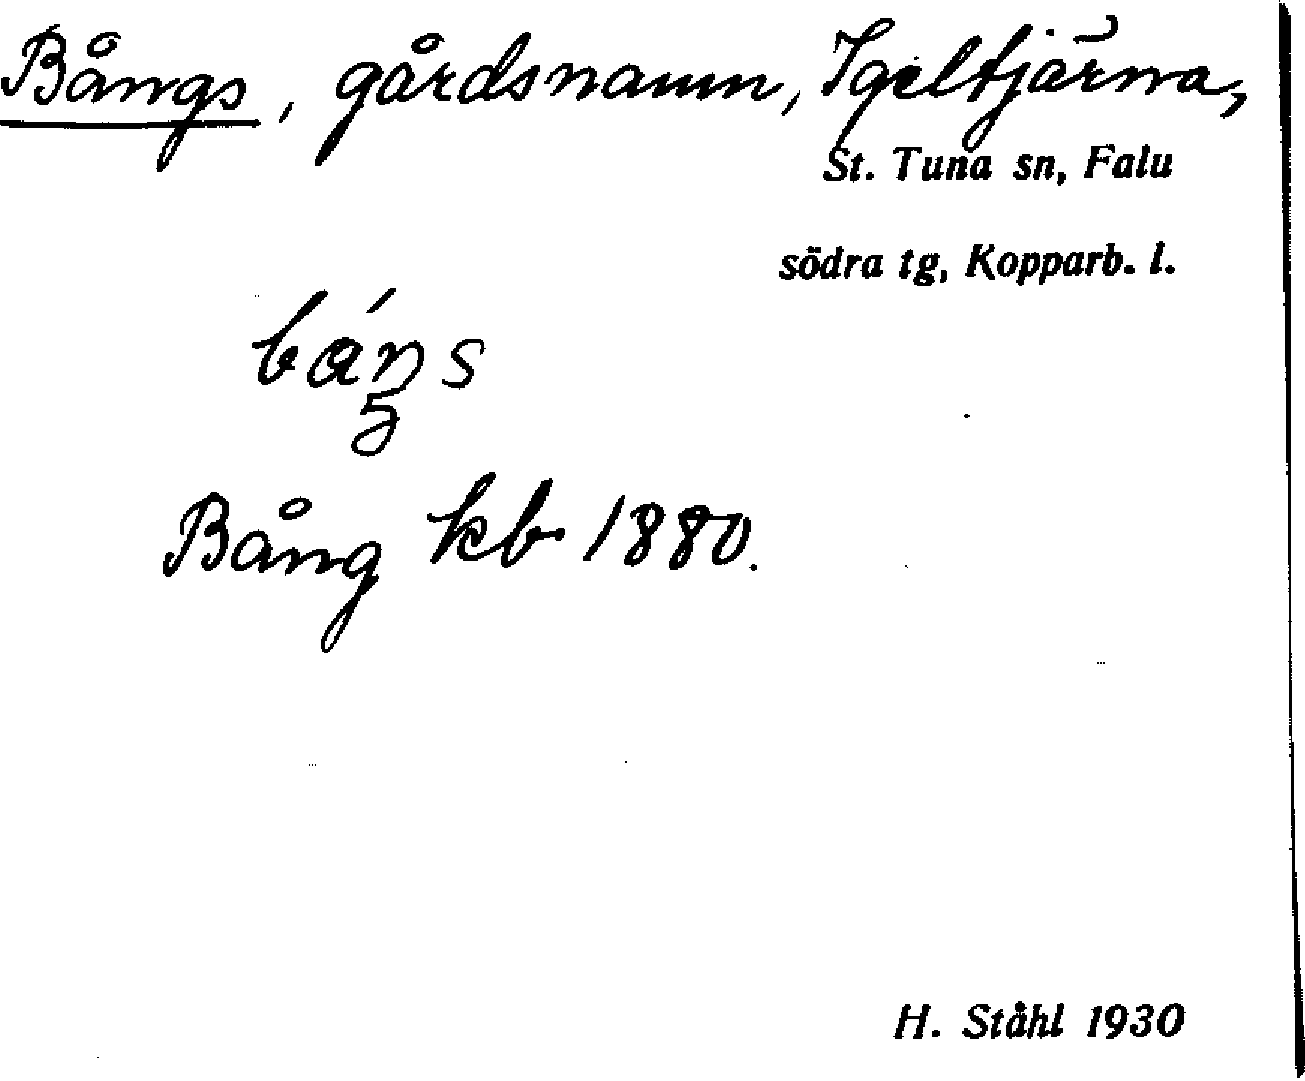 Bångs, gårdsnamn, Igeltjärna,
St. Tuna sn, Falu
södra tg, Kopparb. l.
báŋs
Bång kb 1880.
H. Ståhl 1930